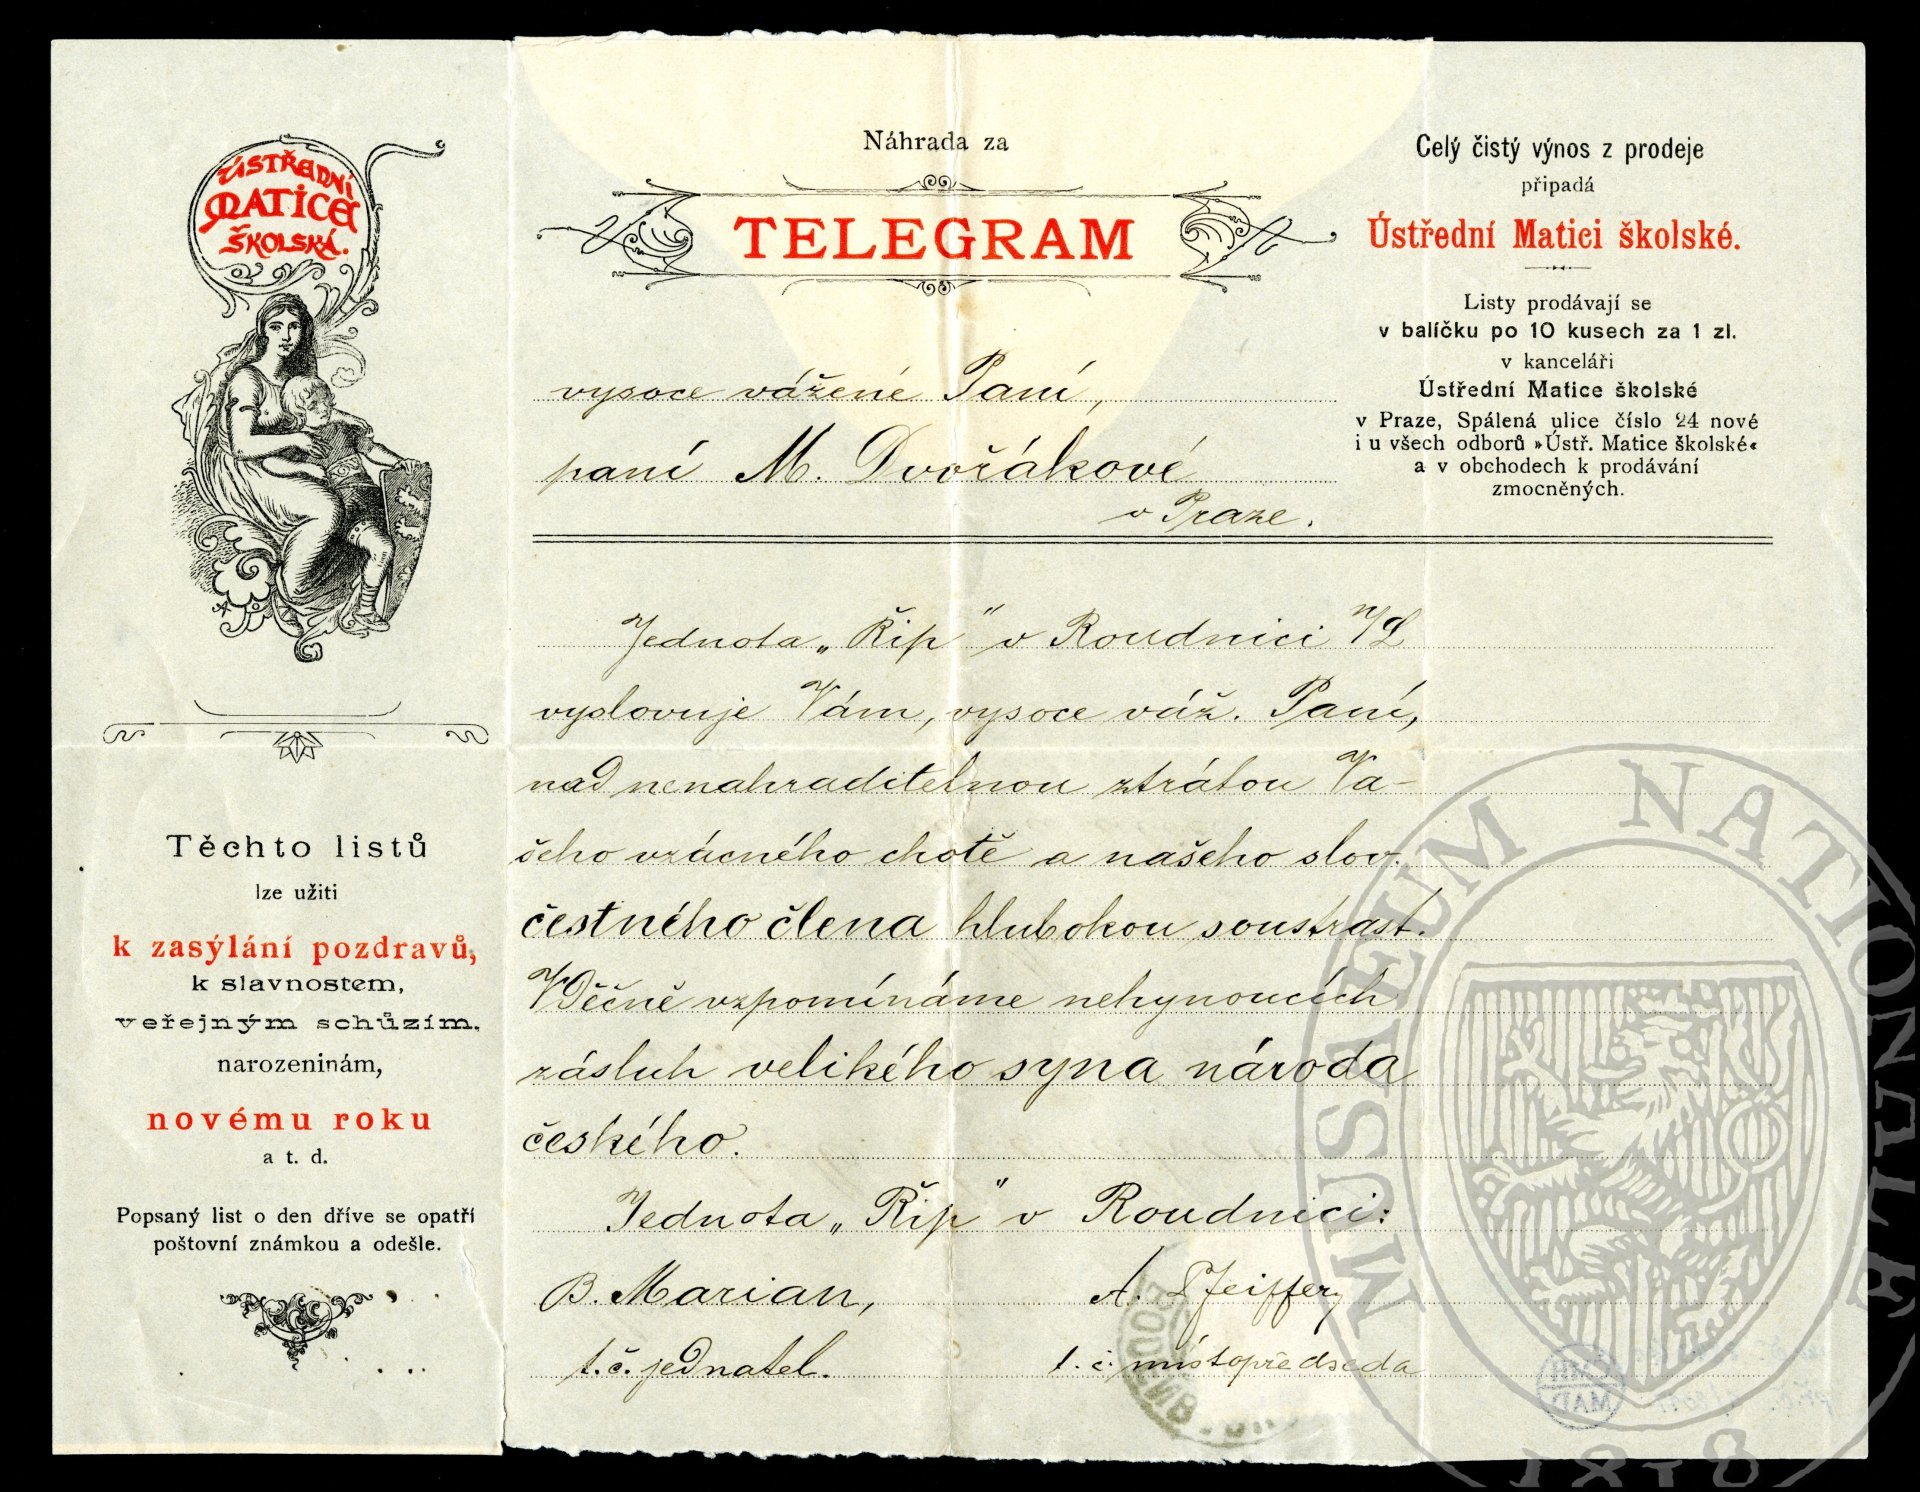 ÚSTŘEDNÍ
MATICE
ŠKOLSKÁ.
Těchto listů
lze užiti
k zasýlání pozdravů,
k slavnostem,
veřejným schůzím,
narozeninám,
novému roku
a t. d.
Popsaný list o den dříve se opatří
poštovní známkou a odešle.
Náhrada za
TELEGRAM
vysoce vážené Paní,
paní M. Dvořákové
v Praze.
Celý čistý výnos z prodeje
připadá
Ústřední Matici školské.
Listy prodávají se
v balíčku po 10 kusech za 1 zl.
v kanceláři
Ústřední Matice školské
v Praze, Spálená ulice číslo 24 nové
i u všech odborů »Ústř. Matice školské«
a v obchodech k prodávání
zmocněných.
Jednota „Řip" v Roudnici n/L
vyslovuje Vám, vysoce váž. Paní,
nad nenahraditelnou ztrátou Va-
šeho vzácného chotě a našeho slov.
čestného člena hlubokou soustrast.
Věčně vzpomínáme nehynoucích
zásluh velikého syna národa
českého.
Jednota „Řip" v Roudnici:
B. Marian,
A. Pfeiffer,
t. č. jednatel.
t. č. místopředseda
MUSAEUM NATIONALE
1818